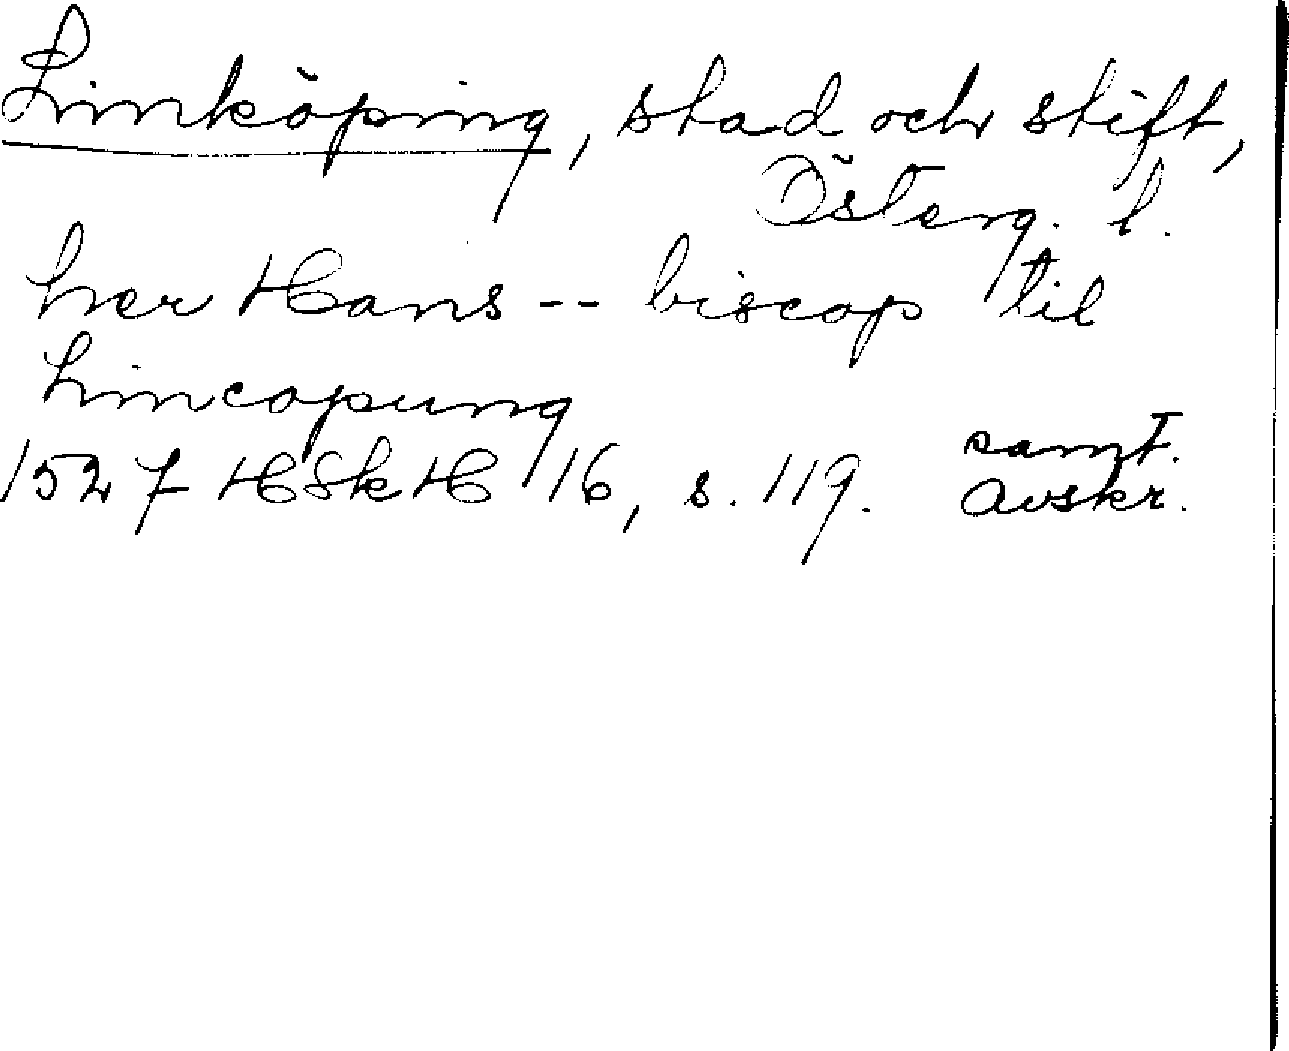 Linköping, stad och stift,
Österg. l.
her Hans -- biscop til
Lincopung
1527 HSkH 16, s. 119. samt.
avskr.